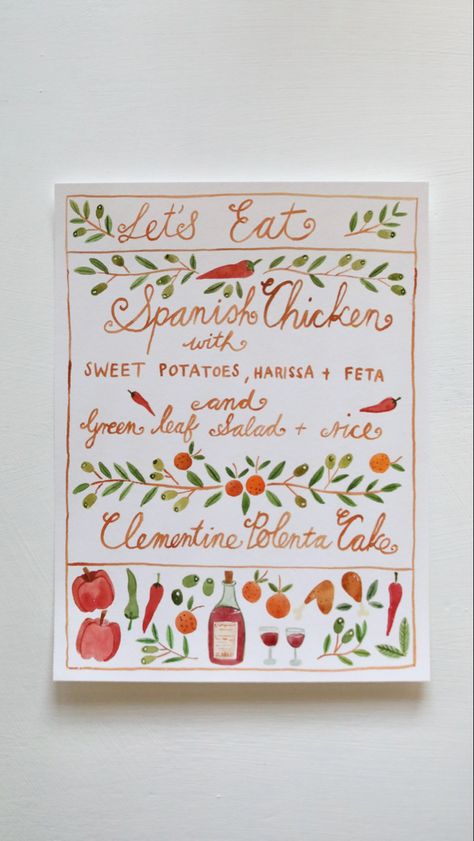 Let's Eat
Spanish Chicken
with
SWEET POTATOES, HARISSA + FETA
and
Green leaf Salad + rice
Clementine Polenta Cake